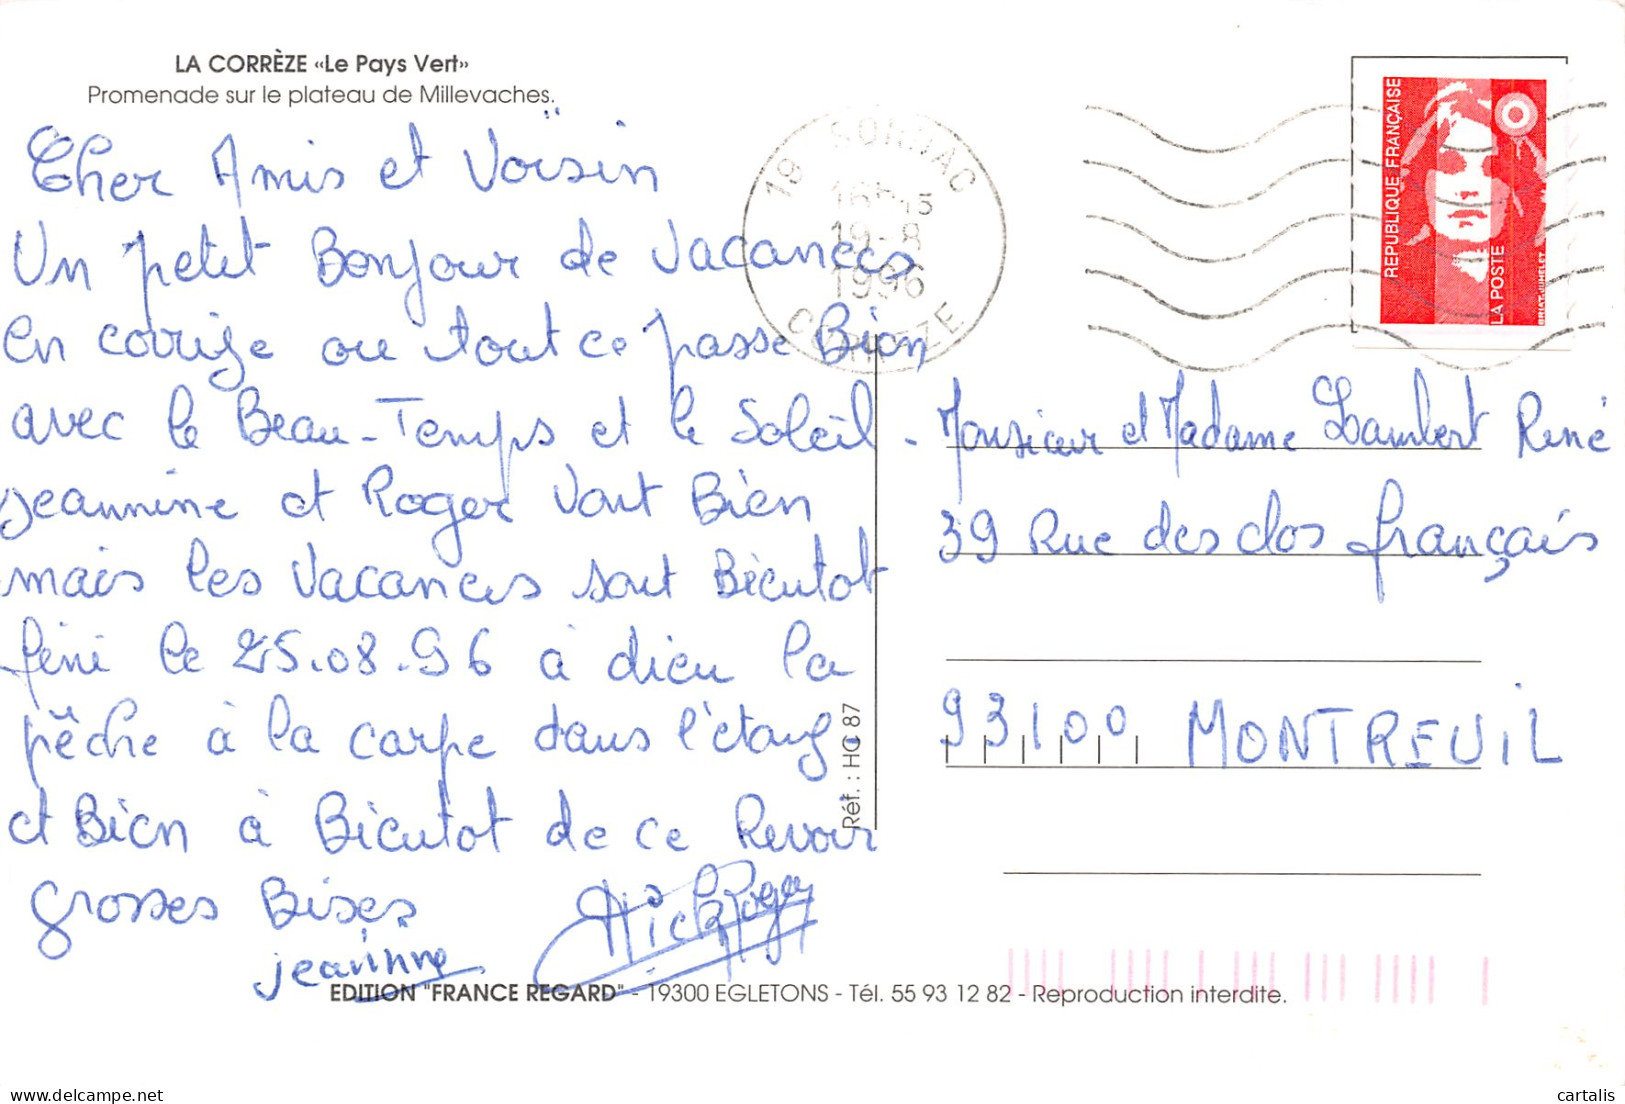 LA CORRÈZE «Le Pays Vert»
Promenade sur le plateau de Millevaches.
Cher Amis et Voïsin
Un petit Bonjour de Vacances
En corrège ou tout ce passe Bien
avec le Beau-Temps et le Soleil -
Jeannine et Roger Vont Bien
mais les Vacances sont Bicutot
féni le 25.08.96 à dieu la
pêche à la carpe dans l'étang.
et Bien à Bicutot de ce Revoir
grosses Bises
jeannine
Roger
19 SORNAC
16H15
19-8
1996
CORREZE
REPUBLIQUE FRANÇAISE
LA POSTE
BRIAT.JUMELET
Monsieur et Madame Lambert René
39 Rue des clos français
93100 MONTREUIL
Réf. : HC 87
EDITION "FRANCE REGARD" - 19300 EGLETONS - Tél. 55 93 12 82 - Reproduction interdite.
cartalis